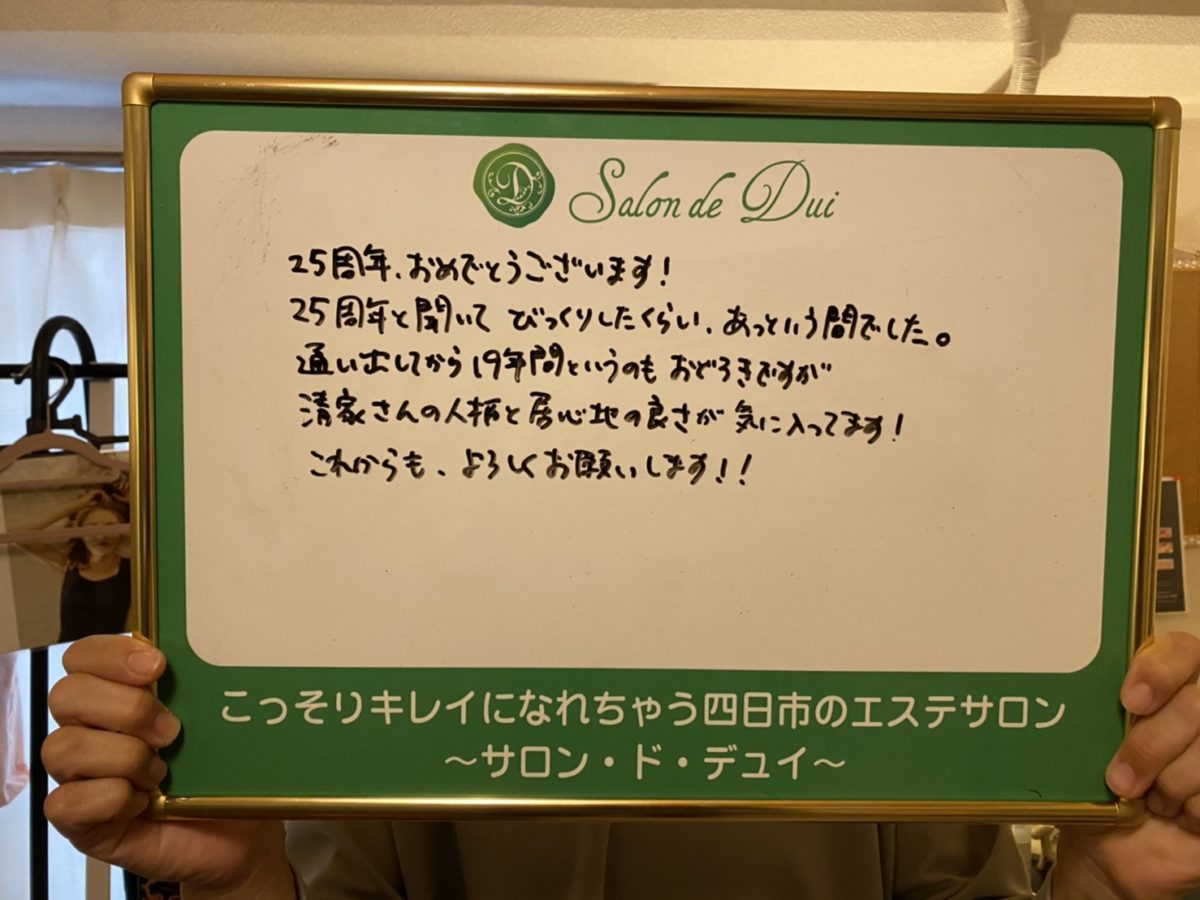 D
Salon de Dui
25周年、おめでとうございます!
25周年と聞いて びっくりしたくらい、あっという間でした。
通い出してから19年間というのも おどろきですが
清家さんの人柄と居心地の良さが 気に入ってます!
これからも、よろしくお願いします!!
こっそりキレイになれちゃう四日市のエステサロン
〜サロン・ド・デュイ〜